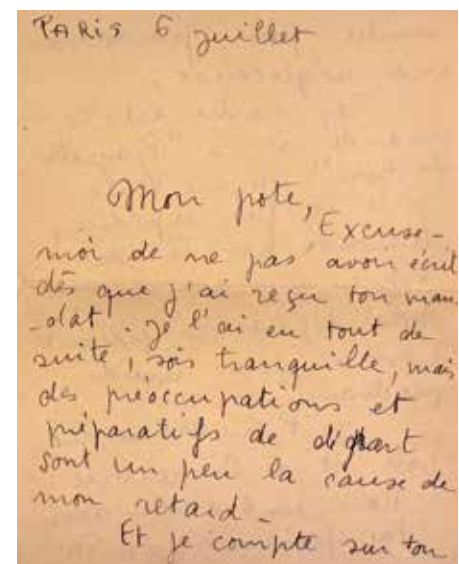 PARIS 6 juillet
Mon pote,
Excuse-
moi de ne pas avoir écrit
dès que j'ai reçu ton man
-dat. Je l'ai eu tout de
suite, sois tranquille, mais
des préoccupations et
préparatifs de départ
sont un peu la cause de
mon retard_
Et je compte sur ton